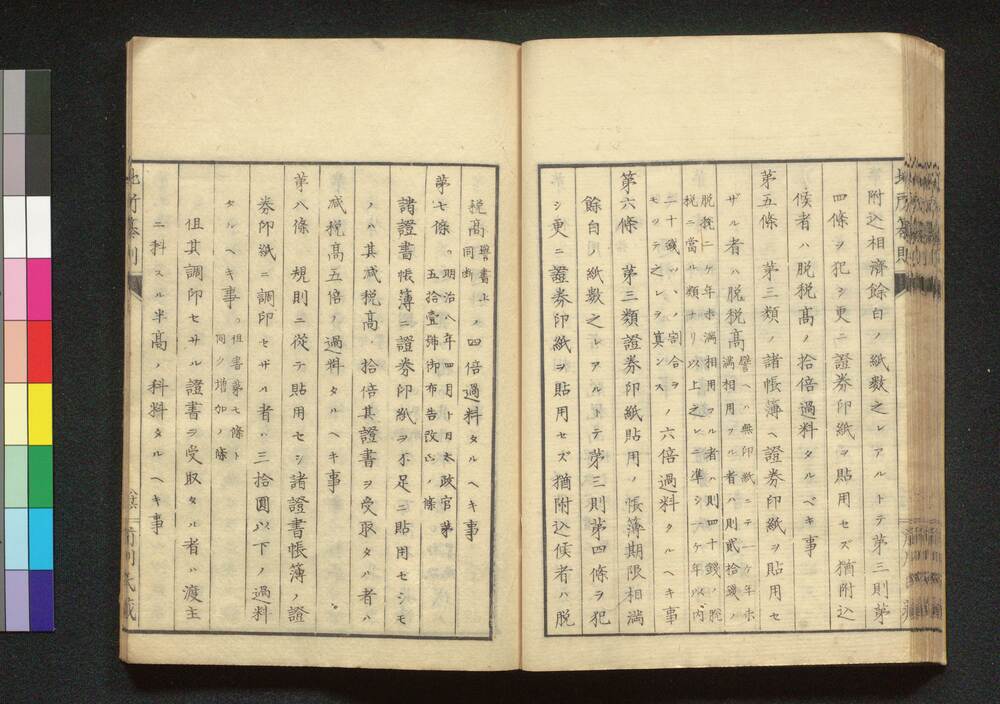 附込相濟餘白ノ紙數之レアルトテ第三則第
四條ヲ犯シ更ニ證券印紙ヲ貼用セズ猶附込
候者ハ脱税髙ノ拾倍過料タルベキ事
第五條 第三類ノ諸帳簿ヘ證券印紙ヲ貼用セ
ザル者ハ脱税髙
譬ヘハ無印紙ニテ一ケ年未
滿相用フル者ハ則貳拾錢ノ
脱税二ケ年未滿相用フル者ハ則四十錢ノ脱
税ニ當ル類ナリ以上之レニ準シ六ケ年以内
二十錢ツヽノ割合ヲ
モツテ之レヲ算ンス
ノ六倍過料タルヘキ事
第六條 第三類證券印紙貼用ノ帳簿期限相満
餘白ノ紙數之レアルトテ第三則第四條ヲ犯
シ更ニ證券印紙ヲ貼用セズ猶附込候者ハ脱
税髙
譬書上
同断
ノ四倍過料タルヘキ事
第七條
明治八年四月十日太政官第
五拾壹號御布告改正ノ條
諸證書帳簿ニ證券印紙ヲ不足ニ貼用セシモ
ノハ其减税髙ノ拾倍其證書ヲ受取タル者ハ
减税髙五倍ノ過料タルヘキ事
第八條 規則ニ從テ貼用セシ諸證書帳簿ノ證
券印紙ニ調印セザル者ハ三拾圓以下ノ過料
タルヘキ事
但書第七條ト
同ク増加ノ條
但其調印セサル證書ヲ受取タル者ハ渡主
ニ科スル半髙ノ科料タルヘキ事